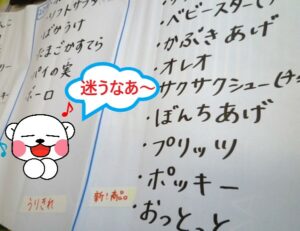 ソフトサラダ
ばかうけ
たまごかすてら
パイの実
ボーロ
うりきれ
迷うなあ～
新!商品
・ベビースター(
・かぶきあげ
・オレオ
・サクサクシュー(チ
・ぼんちあげ
・プリッツ
・ポッキー
・おっとっと